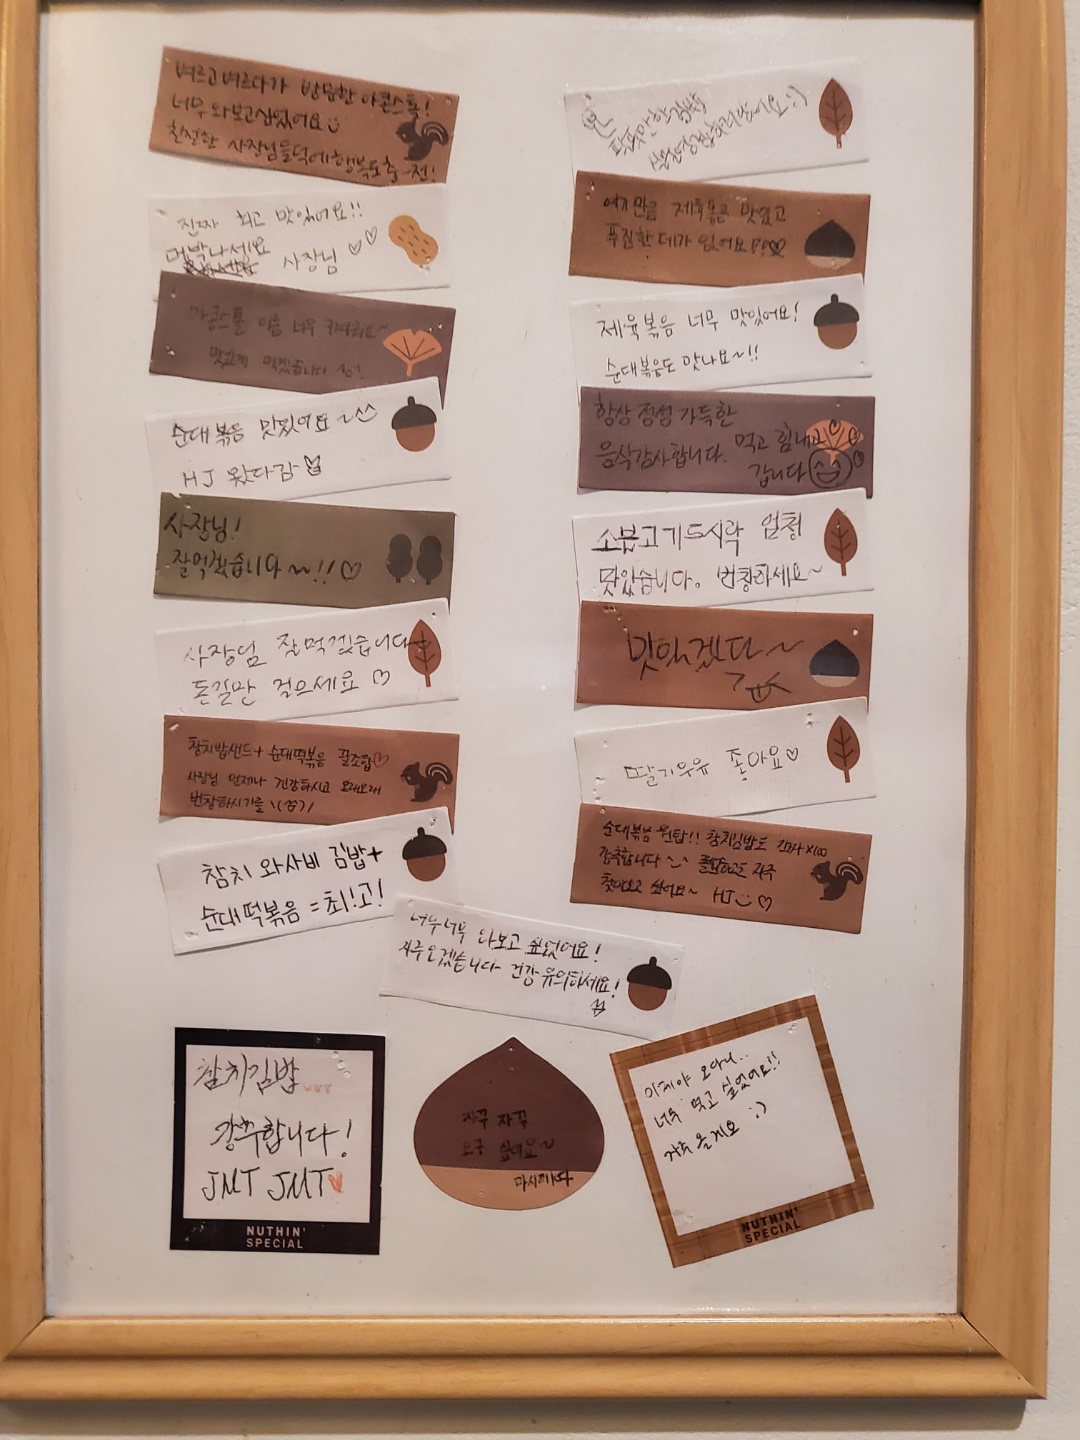 벼르고 벼르다가 방문한 아콘스톨!
너무 와보고싶었어요
친절한 사장님들덕에 행복도충-전!
진짜 최고 맛있어요!!
대박나세요
사장님
아콘스톨 이름 너무 귀여워요~
맛있게 먹겠습니다
순대볶음 맛있어요~^^
HJ 왔다감
사장님!
잘먹겠습니다~!!
사장님 잘먹겠습니다
돈길만 걸으세요
참치밥샌드+순대떡볶음 꿀조합
사장님 언제나 건강하시고 오래오래
번창하시기를
참치 와사비 김밥+
순대떡볶음=최!고!
여기만큼 제육볶음 맛있고
푸짐한데가 없어요
제육볶음 너무 맛있어요!
순대볶음도 맛나요~!!
항상 정성 가득한
음식감사합니다. 먹고 힘내고
갑니다
소불고기도시락 엄청
맛있습니다. 번창하세요~
맛있겠다~
딸기우유 좋아요
순대볶음 원탑!! 참치김밥도 진짜 x100
강추합니다 자주
찾아오고 싶어요~ HJ
너무너무 와보고 싶었어요!
자주오겠습니다 건강 유의하세요!
참치김밥
강추합니다!
JMT JMT
NUTHIN'
SPECIAL
자꾸 자꾸
오구 싶어요~
마시따
이제야 오다니..
너무 먹고 싶었어요!!
자주 올게요 :)
NUTHIN'
SPECIAL